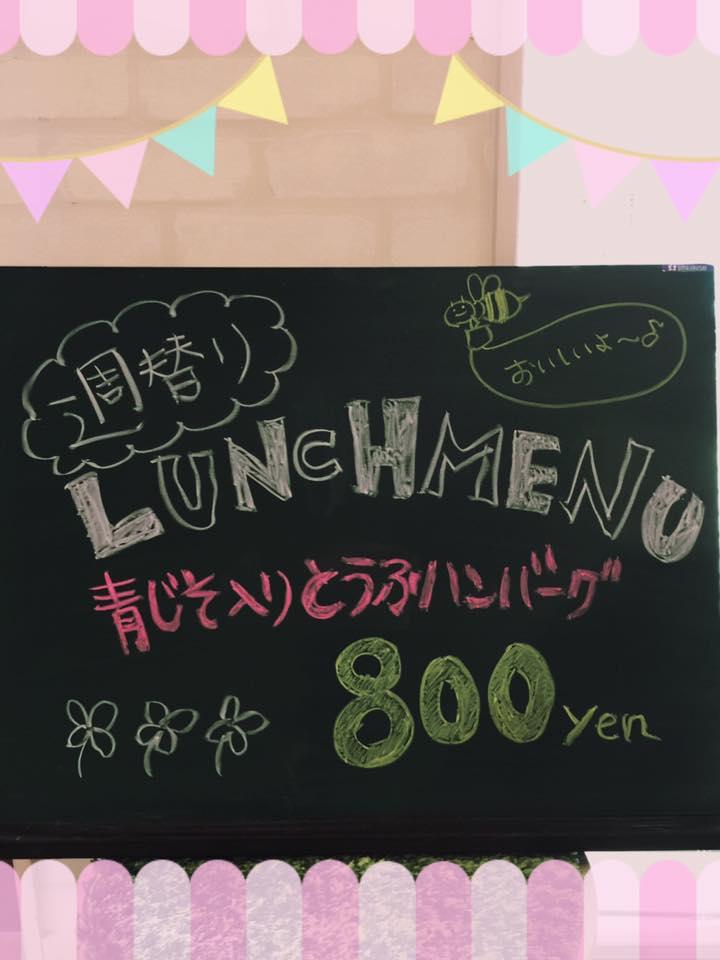 週替り
おいしいよ～♪
LUNCH MENU
青じそ入りとうふハンバーグ
800 yen